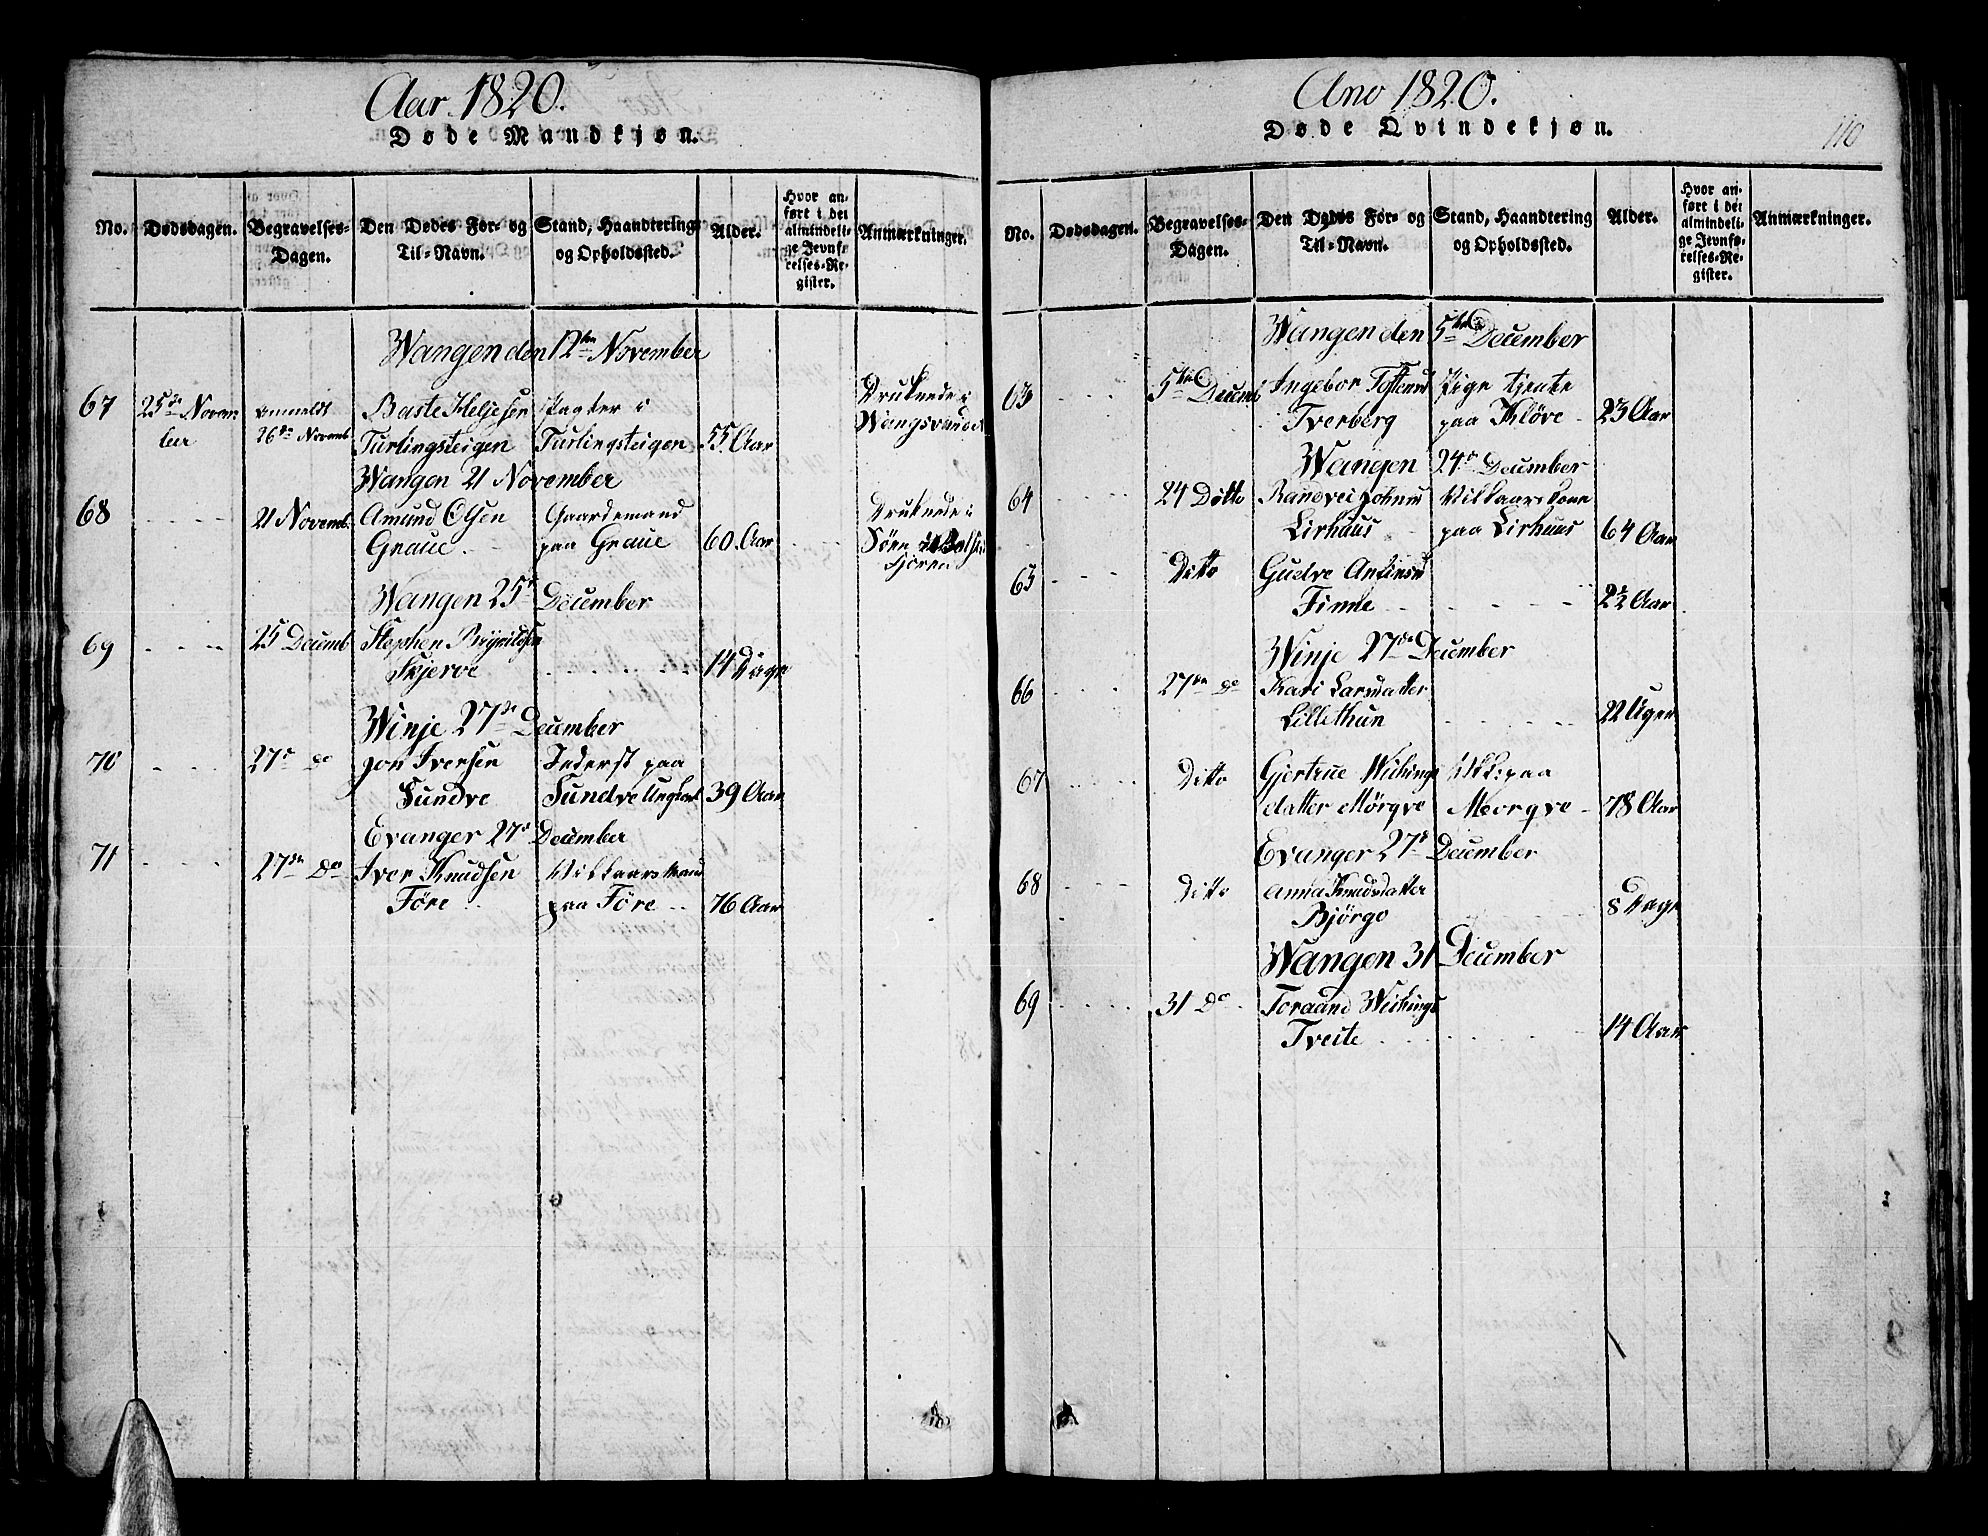 Aar 1820.
Døde Mandkjøn.
No.
Dødsdagen.
Begravelses-
Dagen.
Den Dødes For- og
Til-Navn.
Stand, Haandtering
og Opholdssted.
Alder.
Hvor an-
ført i det
almindeli-
ge Jevnfø-
relses-Re-
gister.
Anmærkninger.
Wangen den 12te November
67 25de Novem
ber
anmeldt
26de Novemb.
Baste Heljesen
Turlingsteigen
Pagter i
Turlingsteigen
55. Aar
Druknede i
Wangsvandet
Wangen 21 November
68 - - - - 21 Novemb.
Amund Olsen
Graue.
Gaardemand
paa Graue
60. Aar
Druknede i
Sören
Fjoren
Wangen 25de December
69 - - - 25 Decemb
Stephen Brynildsen
Skjerve
14 Dage
Winje 27de December
70 - - - 27de do
Jon Iversen
Sundve
Inderst paa
Sundve Ungkarl
39 Aar
Evanger 27de December
71 - - - 27de Do
Iver Knudsen
Före
Vilkaarsmand
paa Före
76 Aar
Ano 1820.
Døde Qvindekjøn.
110
No.
Dødsdagen.
Begravelses-
Dagen.
Den Dødes For- og
Til-Navn.
Stand, Haandtering
og Opholdssted.
Alder.
Hvor an-
ført i det
almindeli-
ge Jevnfø-
relses-Re-
gister.
Anmærkninger.
Wangen den 5te December
63 - - - 5te Decemb
Ingebor Tostensd
Tverberg
Pige tjente
paa Klöve
23 Aar
Wangen 24de December
64 - - - 24 Ditto
Randvei Johnsd
Lirhuus
Vilkaarskone
paa Lirhuus
64 Aar
65 - - - Ditto
Gudve
Finne
2½ Aar
Winje 27de December
66 - - - 27de do
Kari Larsdatter
Lillethun
22 Uger
67 - - - Ditto
Gjertrue Wichings
datter Mörqve
Vilk: paa
Mörqve
78 Aar
Evanger 27de December
68 - - - Ditto
Anna Knudsdatter
Björgo
8 Dage
Wangen 31 December
69 - - - 31 Do
Toraand Wichings
Tveite
14 Aar